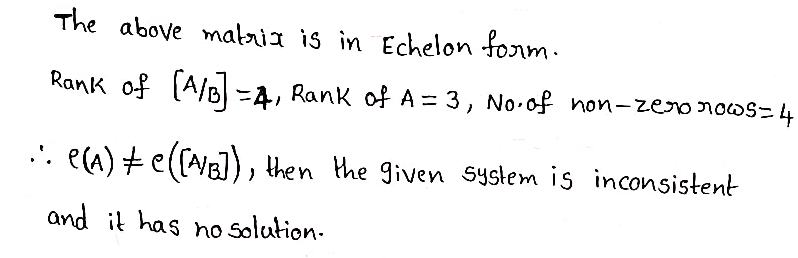 The above matrix is in Echelon form.
Rank of [A/B] = 4, Rank of A = 3, No. of non-zero rows = 4
∴ ρ(A) ≠ ρ([A/B]), then the given system is inconsistent
and it has no solution.